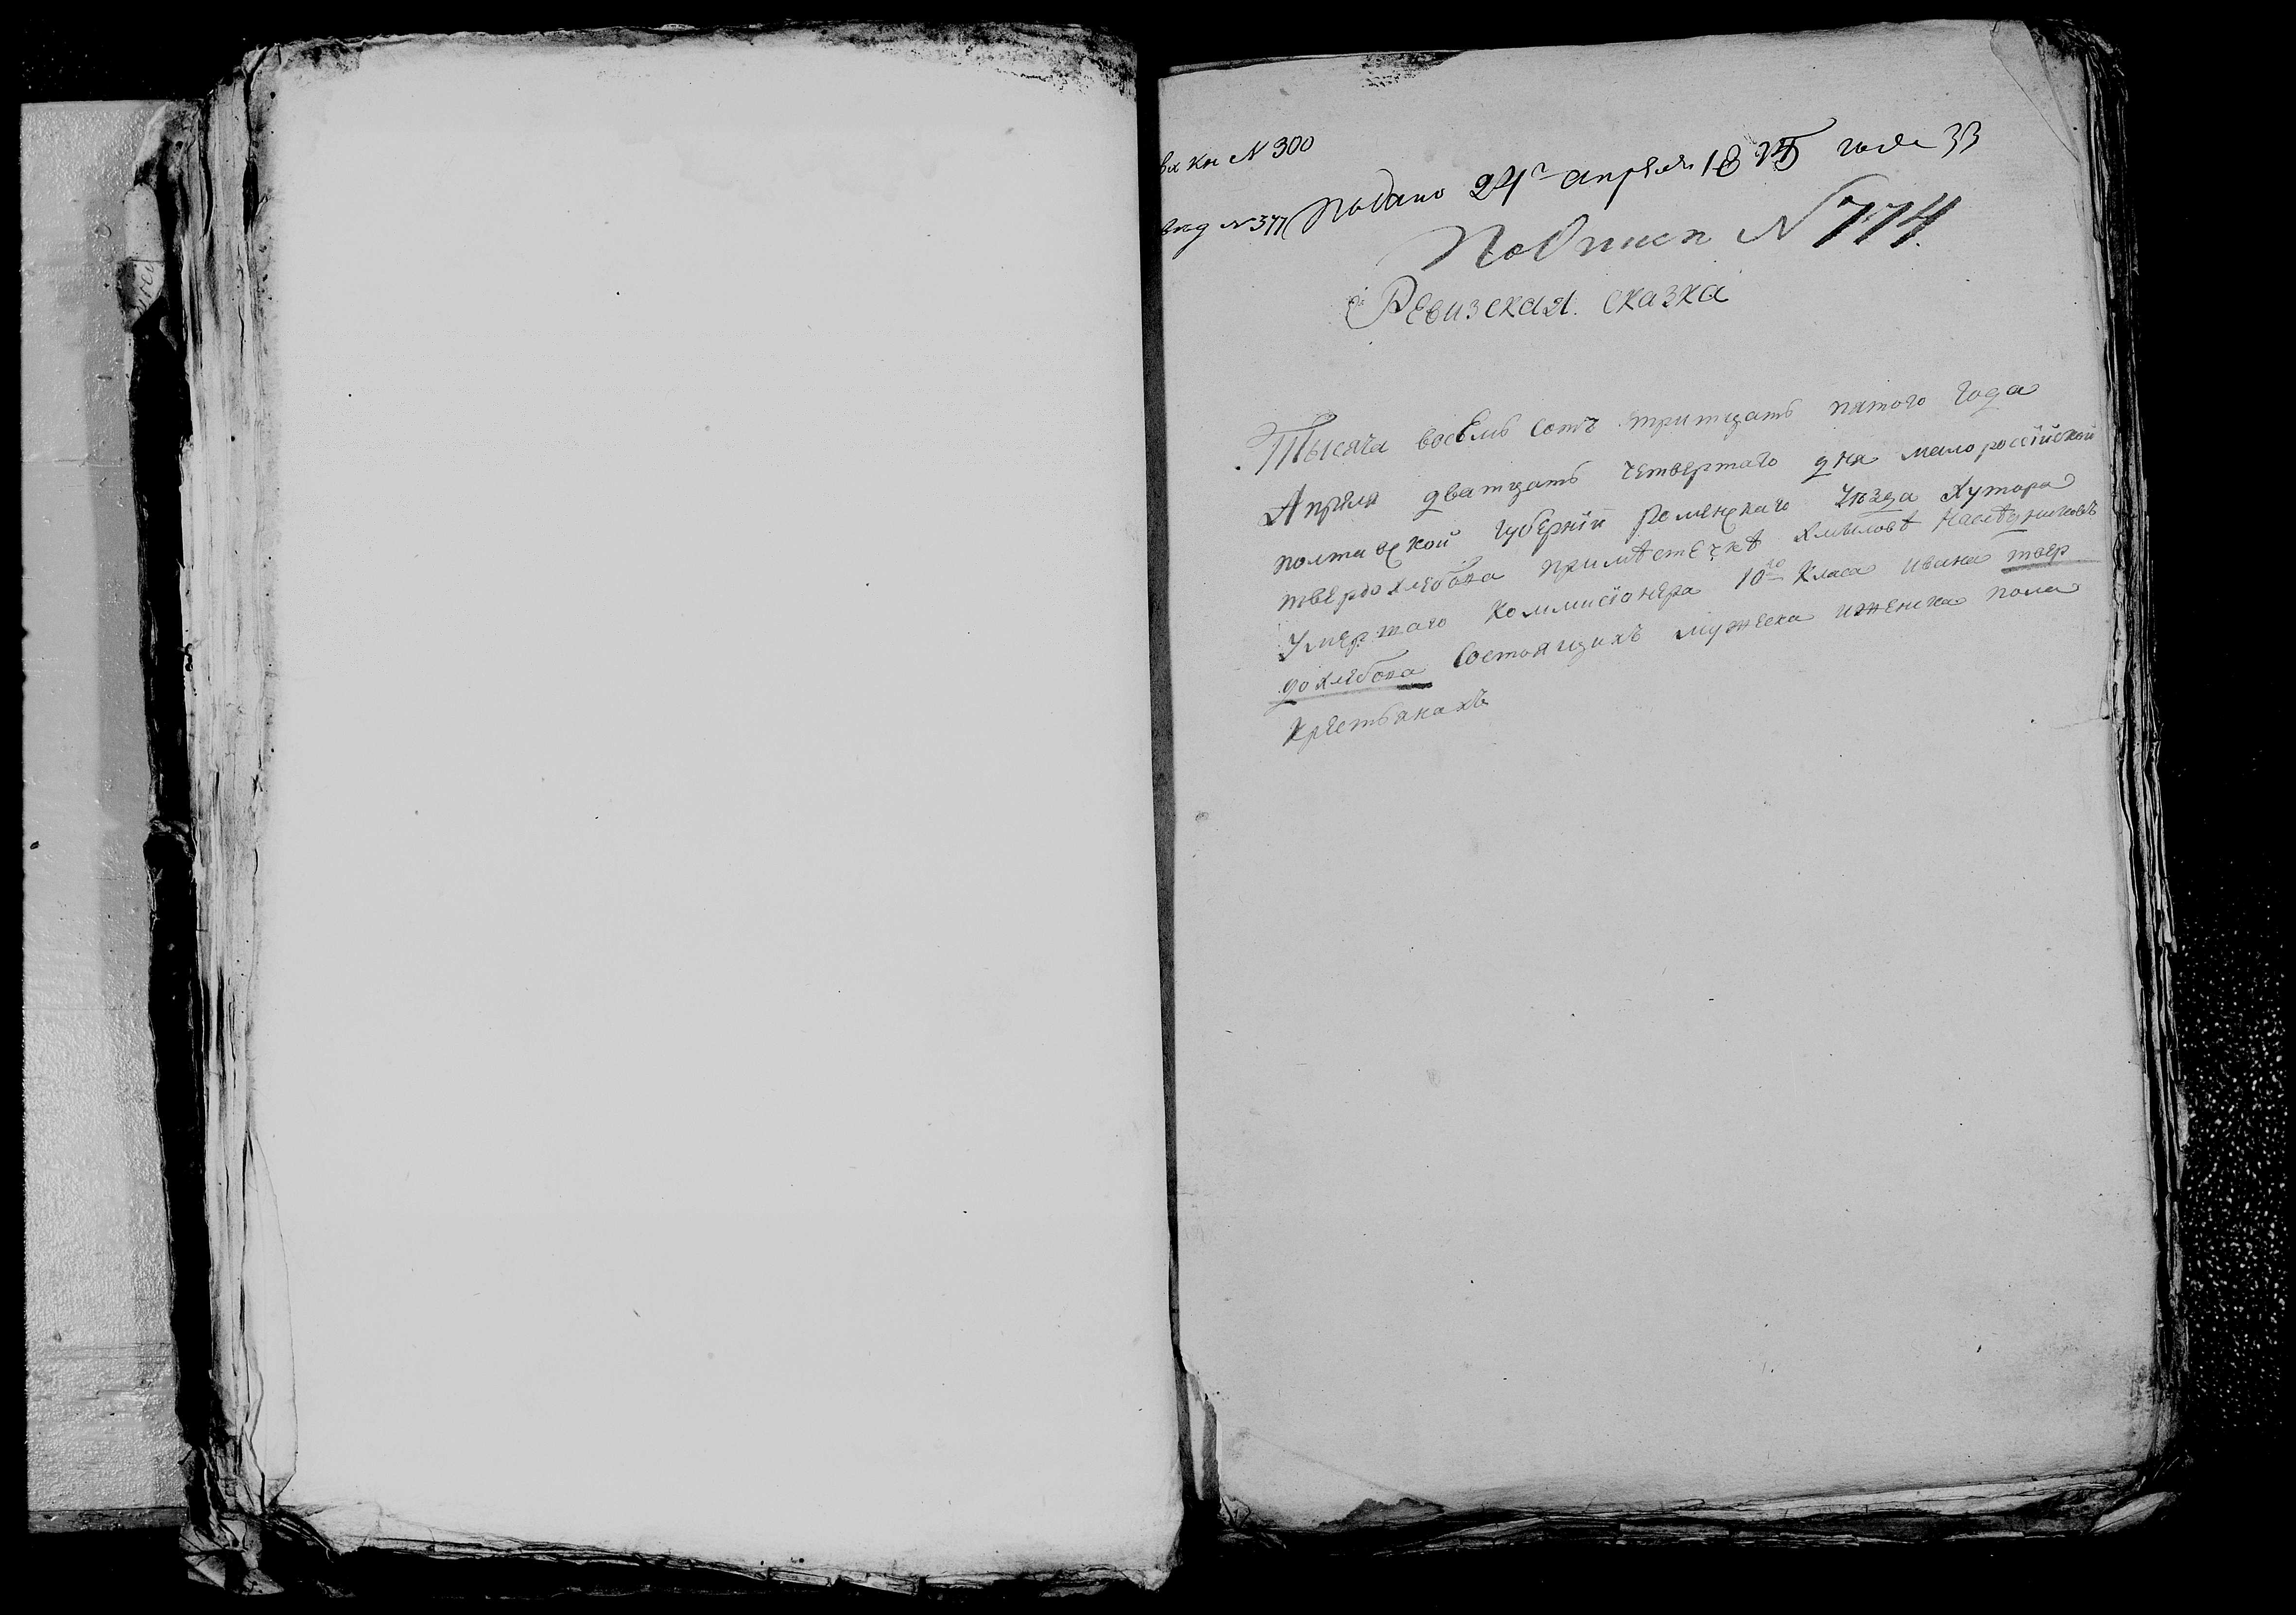 вх кн N 300
Подано 24го апреля 1835 года 33
N 377
N 774
Ревизская сказка
Тысяча восемь сотъ тритцать пятого года
Апреля дватцать четвертаго дня малороссійской
полтавской губерніи роменскаго уѣзда хутора
твердохлебова при мѣстечкѣ хмѣловѣ наслѣдниковъ
умертаго коммисіонера 10го класа ивана твер
дохлебова состоящихъ мужеска и женска пола
крестьянахъ